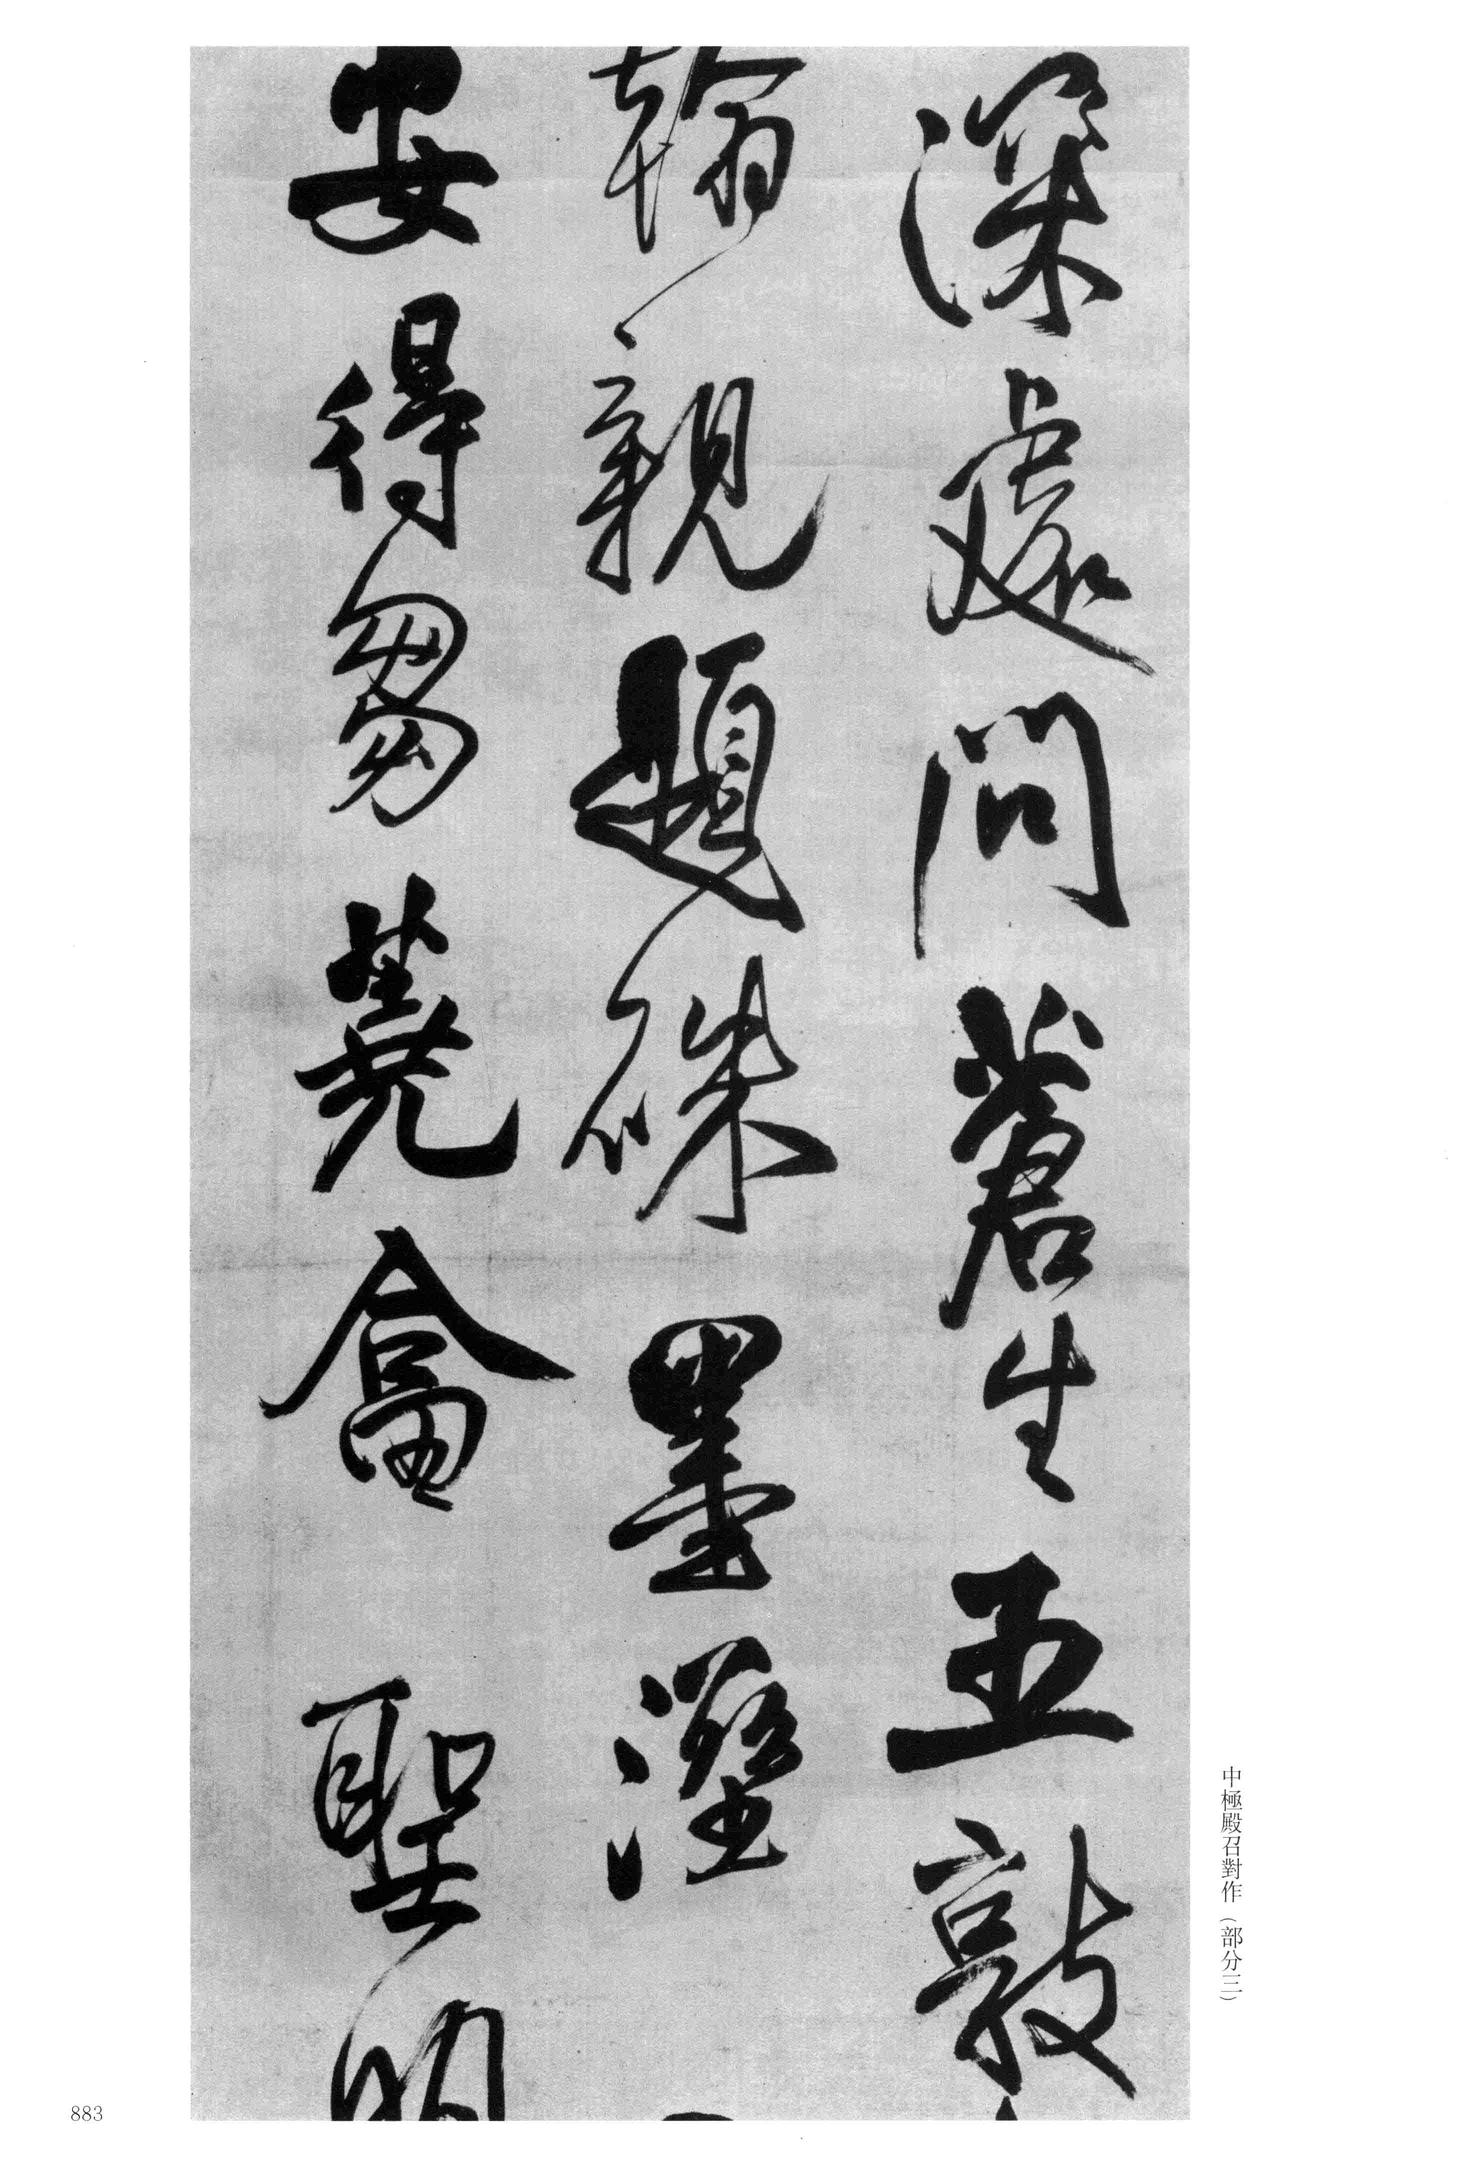 深處問蒼生五敲
翰親題硃墨溼
安得芻蕘畣聖明
中極殿召對作（部分三）
883